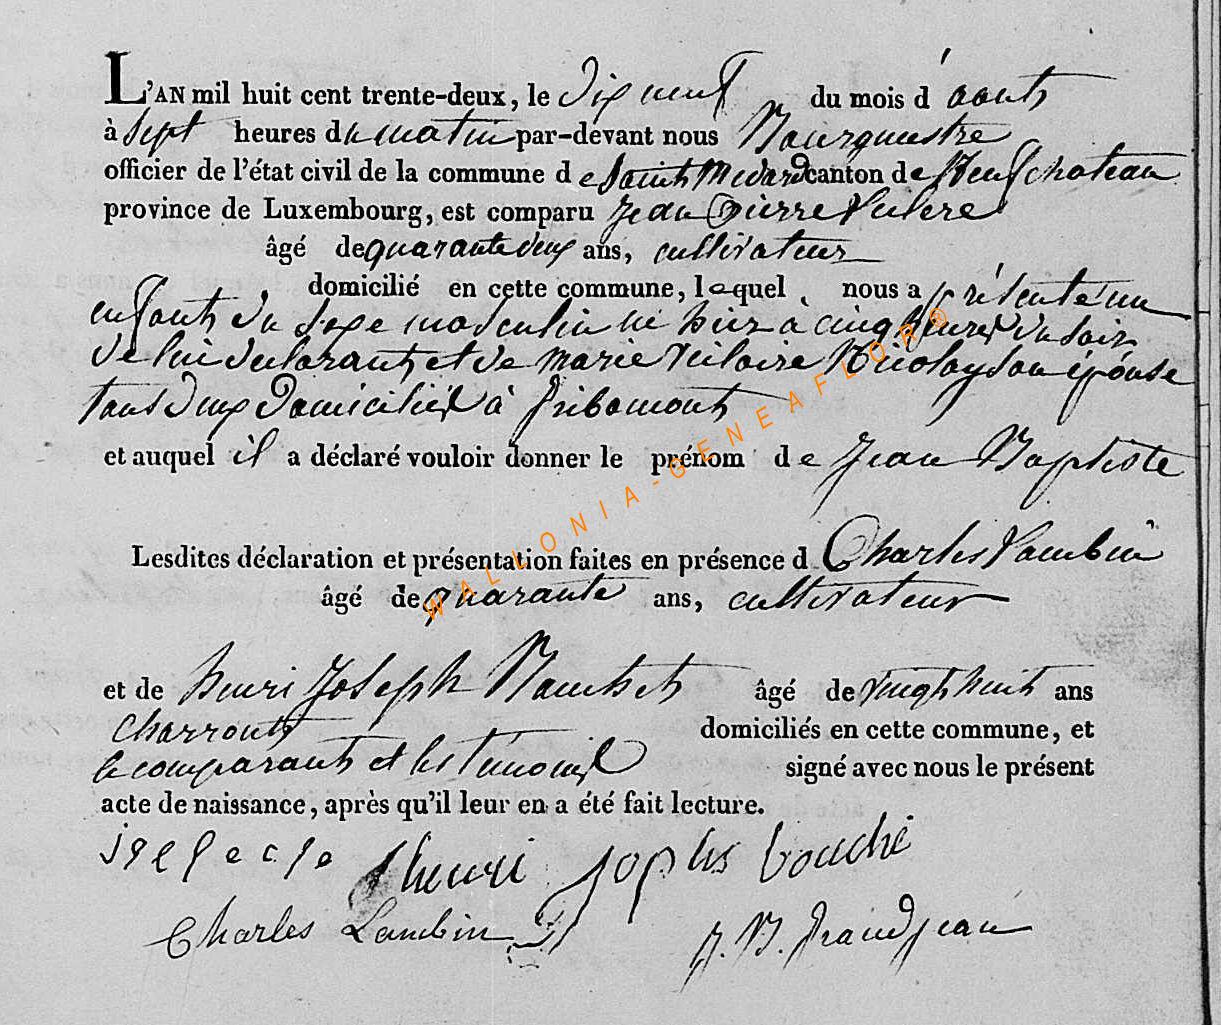 L'AN mil huit cent trente-deux, le dix neuf du mois d'aout
à sept heures du matin par-devant nous Bourgmestre
officier de l'état civil de la commune de Saint Medard canton de Neufchateau
province de Luxembourg, est comparu Jean Pierre
âgé de quarante deux ans, cultivateur
domicilié en cette commune, lequel nous a présenté un
enfant du sexe masculin né hier a cinq heures du soir
de lui declarant et de Marie Nicolay son épouse
tous deux domiciliés à Gribomont
et auquel il a déclaré vouloir donner le prénom de Jean Baptiste
Lesdites déclaration et présentation faites en présence d Charles Lambin
âgé de quarante ans, cultivateur
et de henri Joseph âgé de vingt huit ans
charront domiciliés en cette commune, et
le comparant et les témoins signé avec nous le présent
acte de naissance, après qu'il leur en a été fait lecture.
henri
Charles Lambin J. B. Grandjean
WALLONIA-GENEAFLOR®